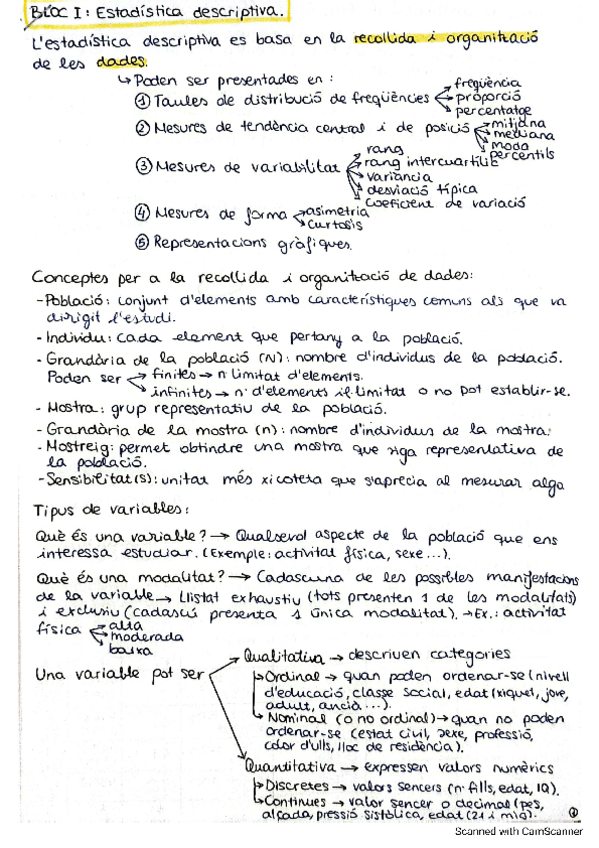 BLOC I: Estadística descriptiva.
L'estadística descriptiva es basa en la recollida i organització
de les dades.
↳ Poden ser presentades en:
① Taules de distribució de freqüències → freqüència
→ proporció
→ percentatge
② Mesures de tendència central i de posició → mitjana
→ mediana
→ moda
→ percentils
③ Mesures de variabilitat → rang
→ rang intercuartílic
→ variància
→ desviació típica
→ coeficient de variació
④ Mesures de forma → asimetria
→ curtosis
⑤ Representacions gràfiques.
Conceptes per a la recollida i organització de dades:
- Població: conjunt d'elements amb característiques comuns als que va
dirigit l'estudi.
- Individu: cada element que pertany a la població.
- Grandària de la població (N): nombre d'individus de la població.
Poden ser → finites → nº limitat d'elements.
→ infinites → nº d'elements il·limitat o no pot establir-se.
- Mostra: grup representatiu de la població.
- Grandària de la mostra (n): nombre d'individus de la mostra.
- Mostreig: permet obtindre una mostra que siga representativa de
la població.
- Sensibilitat (S): unitat més xicoteta que s'aprecia al mesurar algo
Tipus de variables:
Què és una variable? → Qualsevol aspecte de la població que ens
interessa estudiar. (Exemple: activitat física, sexe...).
Què és una modalitat? → Cadascuna de les possibles manifestacions
de la variable → Llistat exhaustiu (tots presenten 1 de les modalitats)
i exclusiu (cadascú presenta 1 única modalitat). → Ex.: activitat
física → alta
→ moderada
→ baixa
Una variable pot ser → Qualitativa → descriuen categories
↳ Ordinal → quan poden ordenar-se (nivell
d'educació, classe social, edat (xiquet, jove,
adult, ancià...).
↳ Nominal (o no ordinal) → quan no poden
ordenar-se (estat civil, sexe, professió,
color d'ulls, lloc de residència).
→ Quantitativa → expressen valors numèrics
↳ Discretes → valors sencers (nº fills, edat, IQ).
↳ Contínues → valor sencer o decimal (pes,
alçada, pressió sistòlica, edat (21 i mig).
①
Scanned with CamScanner